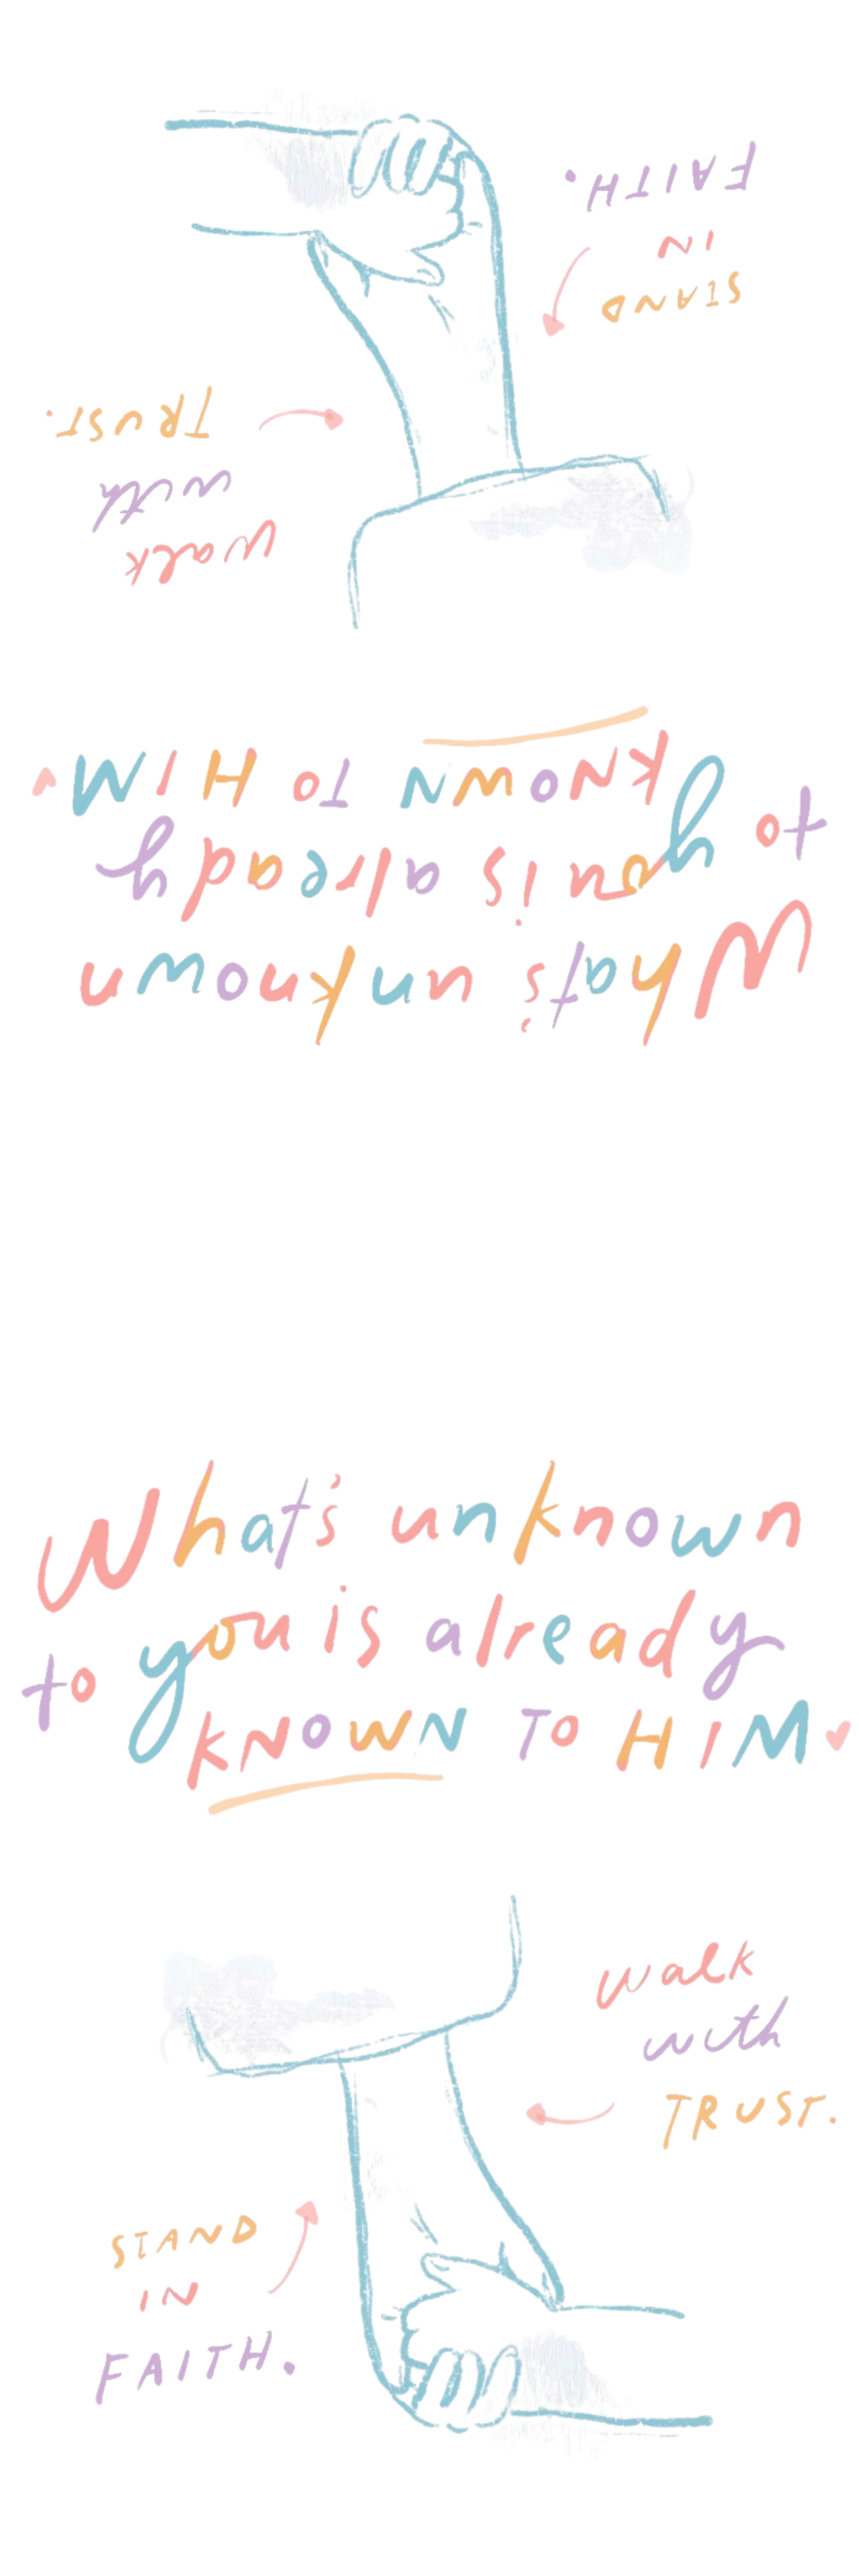 STAND
IN
FAITH.
Walk
with
TRUST.
What's unknown
to you is already
KNOWN TO HIM
What's unknown
to you is already
KNOWN TO HIM
Walk
with
TRUST.
STAND
IN
FAITH.